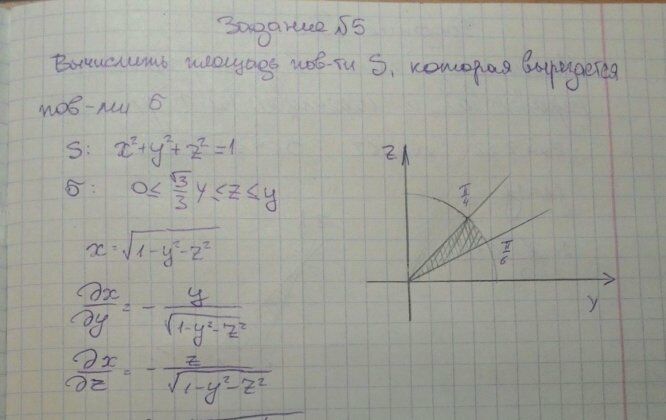 Задание №5
Вычислить площадь пов-ти S, которая вырезается
пов-ми б
S: x²+y²+z²=1
б: 0≤ √3/3 y ≤ z ≤ y
x = √(1-y²-z²)
∂x/∂y = - y/√(1-y²-z²)
∂x/∂z = - z/√(1-y²-z²)
z
π/4
π/6
y